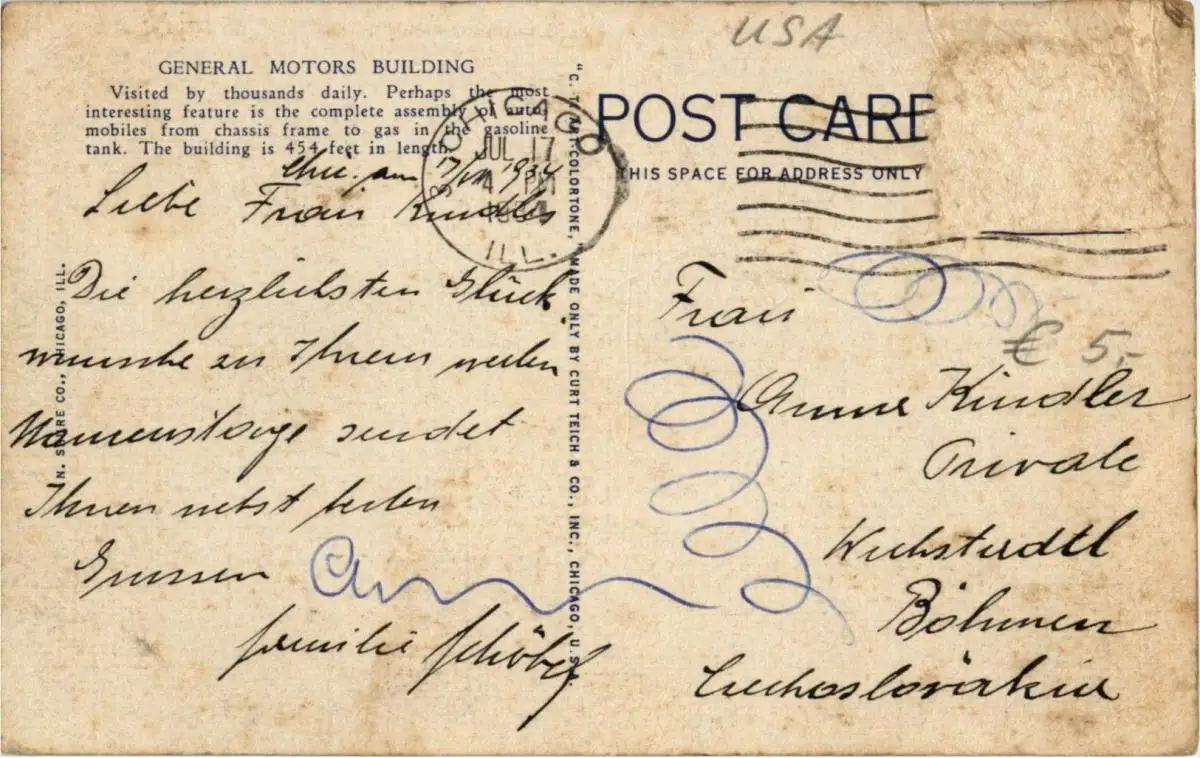 USA
GENERAL MOTORS BUILDING
Visited by thousands daily. Perhaps the most
interesting feature is the complete assembly of auto-
mobiles from chassis frame to gas in the gasoline
tank. The building is 454 feet in length.
CHICAGO
JUL 17
4 PM
ILL.
POST CARD
THIS SPACE FOR ADDRESS ONLY
Chic. am 17/VII 1934
Liebe Frau Kindler
Die herzlichsten Glück
wünsche zu Ihrem werten
Namenstage sendet
Ihnen nebst besten
Grüssen
Familie
"C. T. ART-COLORTONE," MADE ONLY BY CURT TEICH & CO., INC., CHICAGO, U.S.
CO., CHICAGO, ILL.
Frau
€ 5,-
Anna Kindler
Private
Böhmen